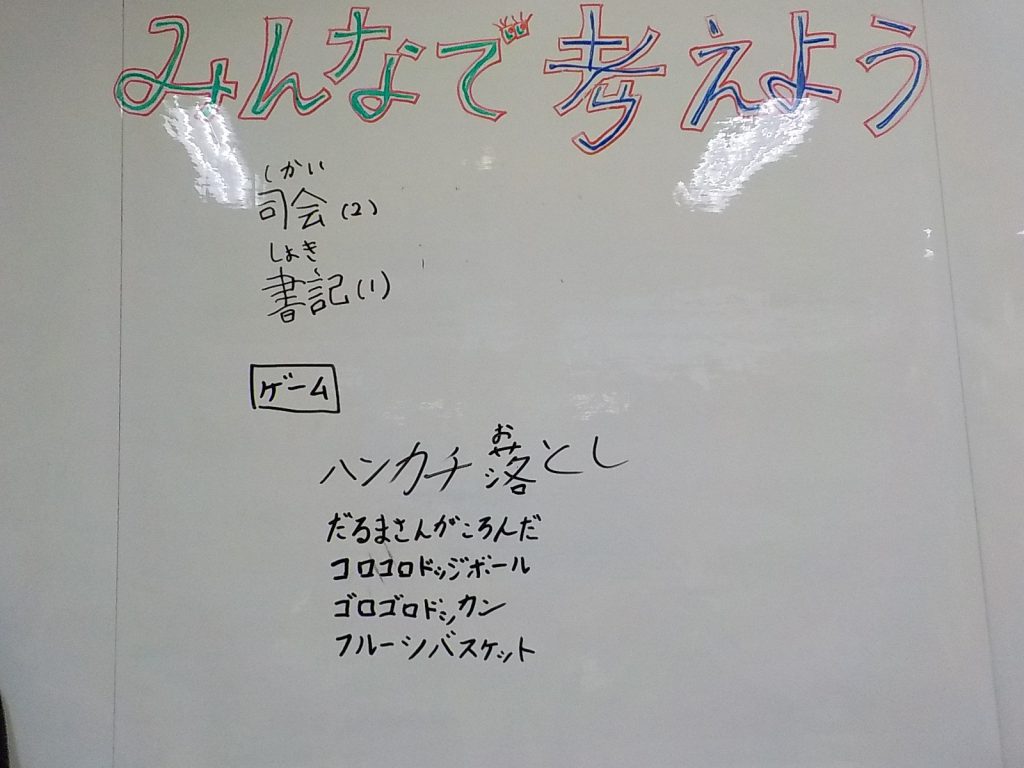 みんなで考えよう
しかい
司会(2)
しょき
書記(1)
ゲーム
お
ハンカチ落とし
だるまさんがころんだ
コロコロドッジボール
ゴロゴロドッカン
フルーツバスケット